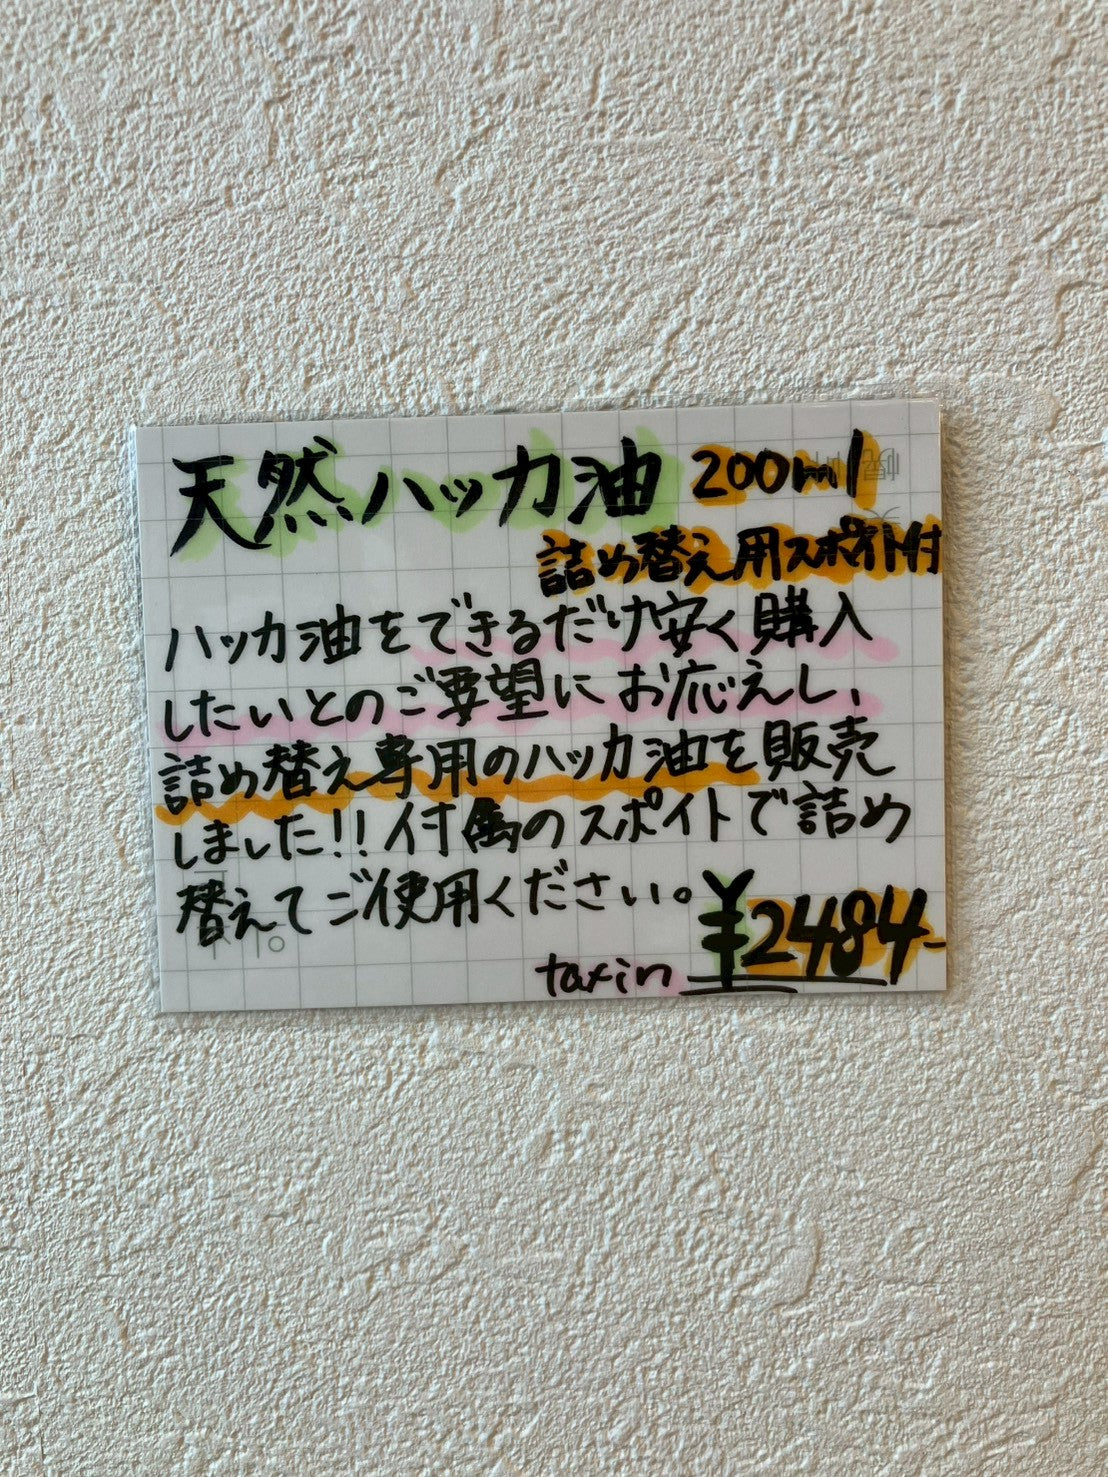 天然ハッカ油 200ml
詰め替え用スポイト付
ハッカ油をできるだけ安く購入
したいとのご要望にお応えし、
詰め替え専用のハッカ油を販売
しました!! 付属のスポイトで詰め
替えてご使用ください。
¥2484-
taxin